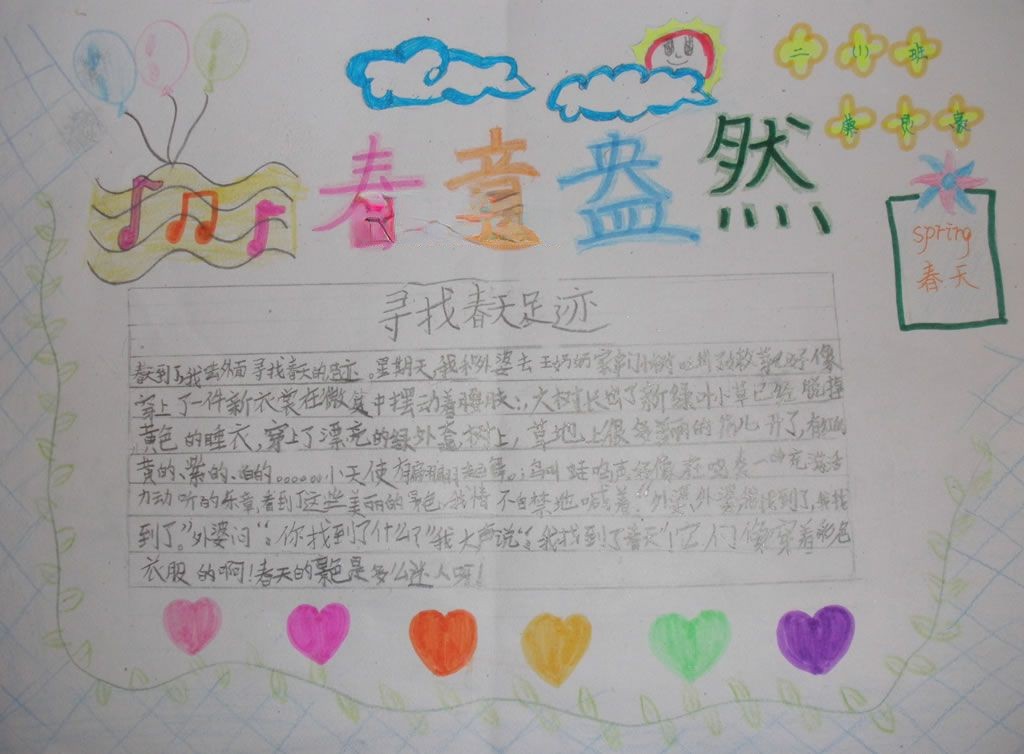 二(1)班
春意盎然
spring
春天
寻找春天足迹
春天到了,我去外面寻找春天的足迹。星期天,我和外婆去王奶奶家,好像
穿上了一件新衣裳在微风中摆动着腰肢,大树长出了新绿,小草已经脱掉
黄色的睡衣,穿上了漂亮的绿外套,树上,草地上很多美丽的花儿开了,有红的
黄的、紫的、白的......小天使有翩翩起舞。鸟叫蛙鸣声好像在唱一充满活
力动听的乐章,看到了这些美丽的景色,我情不自禁地喊着“外婆,外婆我找到了,我找
到了。”外婆问“:你找到了什么?”我大声说“:我找到了春天”!它们像穿着彩色
衣服的啊!春天的景色是多么迷人呀!